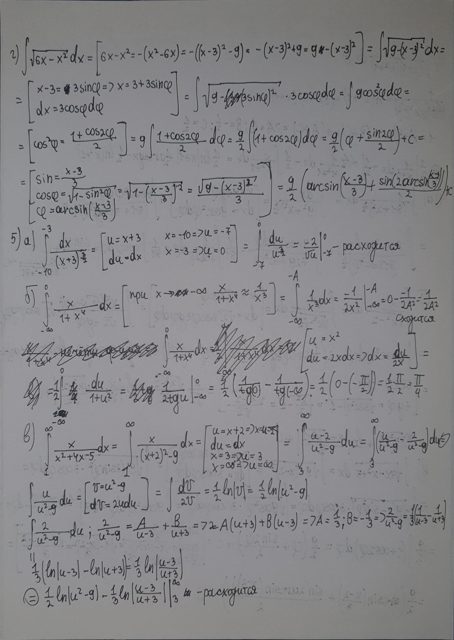 г) ∫√(6x-x²) dx = [6x-x² = -(x²-6x) = -((x-3)²-9) = -(x-3)²+9 = 9-(x-3)²] = ∫√(9-(x-3)²) dx =
= [x-3 = 3sinφ => x = 3+3sinφ dx = 3cosφdφ] = ∫√(9-(3sinφ)²) · 3cosφdφ = ∫9cos²φdφ =
= [cos²φ = (1+cos2φ)/2] = 9∫(1+cos2φ)/2 dφ = 9/2 ∫(1+cos2φ)dφ = 9/2 (φ + sin2φ/2) + C =
= [sin = (x-3)/3 cosφ = √(1-sin²φ) = √(1-((x-3)/3)²) = √(9-(x-3)²)/3 φ = arcsin((x-3)/3)] = 9/2 (arcsin((x-3)/3) + sin(2arcsin((x-3)/3))/2) + C
5) а) ∫ dx/(x+3) = [u = x+3 du = dx x = -10 => u = -7 x = -3 => u = 0] = ∫ du/u = -2/√u | - расходится
б) ∫ x/(1+x⁴) dx = [при x → -∞ x/(1+x⁴) ≈ 1/x³] = ∫ 1/x³ dx = -1/2x² | = 0 - -1/2A² = 1/2A² сходится
∫ x/(1+x⁴) dx = [u = x² du = 2xdx => dx = du/2x] =
du/(1+u²) = 1/2 (0-(-π/2)) = 1/2 π/2 = π/4
в) ∫ x/(x²+4x-5) dx = ∫ x/((x+2)²-9) dx = [u = x+2 => x = u-2 du = dx x = 1 => u = 3 x = ∞ => u = ∞] = ∫ (u-2)/(u²-9) du = ∫ (u/(u²-9) - 2/(u²-9)) du =
∫ u/(u²-9) du = [v = u²-9 dv = 2udu] = ∫ dv/2v = 1/2 ln|v| = 1/2 ln|u²-9|
∫ 2/(u²-9) du; 2/(u²-9) = A/(u-3) + B/(u+3) => 2 = A(u+3) + B(u-3) => A = 1/3; B = -1/3 => 2/(u²-9) = 1/3 (1/(u-3) - 1/(u+3))
1/3 (ln|u-3| - ln|u+3|) = 1/3 ln|(u-3)/(u+3)|
= 1/2 ln|u²-9| - 1/3 ln|(u-3)/(u+3)| | - расходится